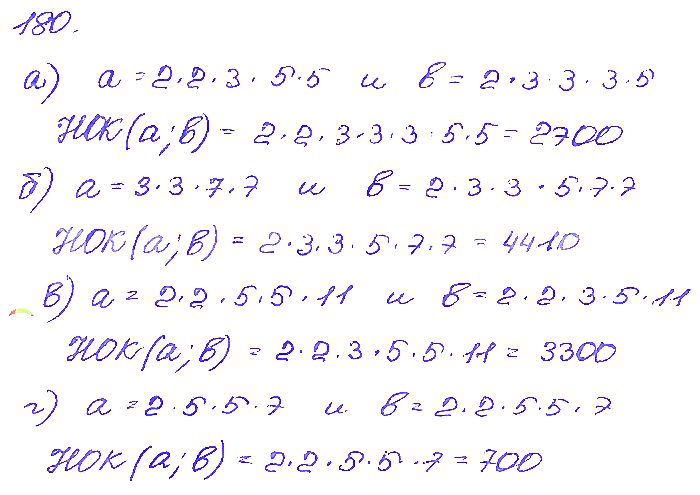 180.
а) а = 2·2·3·5·5 и в = 2·3·3·3·5
НОК(а;в) = 2·2·3·3·3·5·5 = 2700
б) а = 3·3·7·7 и в = 2·3·3·5·7·7
НОК(а;в) = 2·3·3·5·7·7 = 4410
в) а = 2·2·5·5·11 и в = 2·2·3·5·11
НОК(а;в) = 2·2·3·5·5·11 = 3300
г) а = 2·5·5·7 и в = 2·2·5·5·7
НОК(а;в) = 2·2·5·5·7 = 700